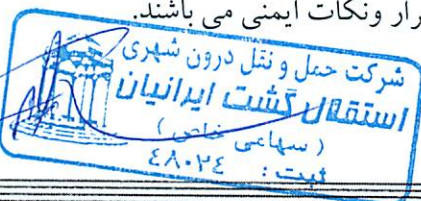 رار ونکات ایمنی می باشند.
شرکت حمل و نقل درون شهری
استقلال گشت ایرانیان
( سهامی خاص )
ثبت : ٤٨٠٢٤